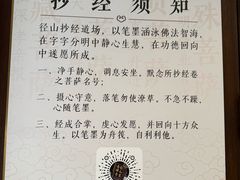 抄经须知
径山抄经道场，以笔墨涵泳佛法智海，
在字字分明中静心生慧，在功德回向
中遂愿所成。
一、净手静心，调息安坐，默念所抄经卷
之菩萨名号；
二、摄心守意，落笔勿使潦草，不急不躁，
心随笔墨。
三、经成合掌，虔心发愿，并回向十方众
生。以笔墨为舟筏，自利利他。